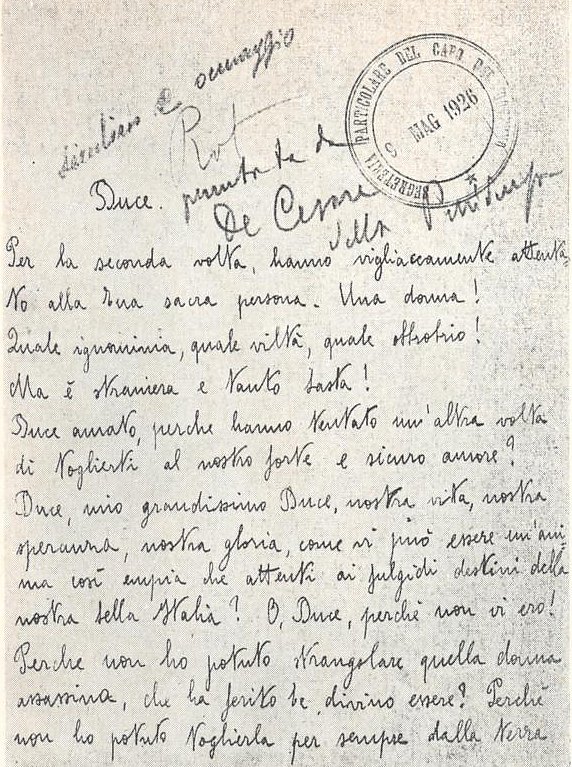 scrivere e omaggio
SEGRETERIA PARTICOLARE DEL CAPO DEL
9 MAG 1926
Duce.
De Cesare
Per la seconda volta, hanno vigliaccamente attenta-
to alla tua sacra persona. Una donna!
Quale ignominia, quale viltà, quale obbrobrio!
Ma è straniera e tanto basta!
Duce amato, perche hanno tentato un'altra volta
di toglierti al nostro forte e sicuro amore?
Duce, mio grandissimo Duce, nostra vita, nostra
speranza, nostra gloria, come vi può essere un'ani-
ma così empia che attenti ai fulgidi destini della
nostra bella Italia? O, Duce, perchè non vi ero!
Perche non ho potuto strangolare quella donna
assassina, che ha ferito te, divino essere? Perchè
non ho potuto toglierla per sempre dalla terra